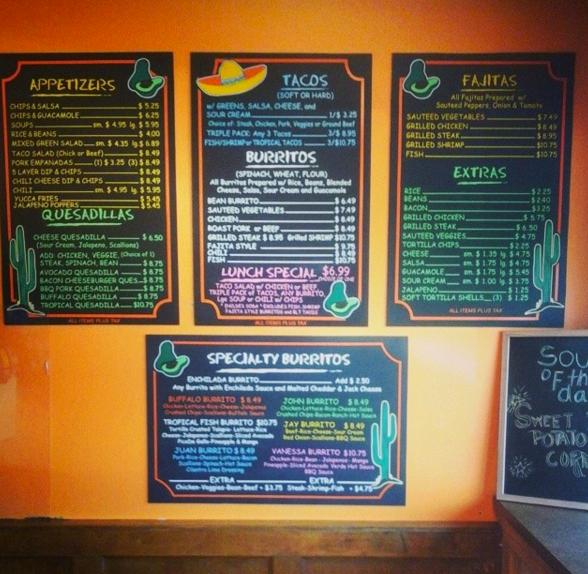 APPETIZERS
CHIPS & SALSA $ 5.25
CHIPS & GUACAMOLE $ 6.25
SOUPS sm. $ 4.95 lg. $ 5.95
RICE & BEANS $ 4.00
MIXED GREEN SALAD sm. $ 4.35 lg. $ 6.89
TACO SALAD (Chick or Beef) $ 8.49
PORK EMPANADAS (1) $ 3.25 (3) $ 8.49
5 LAYER DIP & CHIPS $ 8.49
CHILI CHEESE DIP & CHIPS $ 8.49
CHILI sm. $ 4.95 lg. $ 5.95
YUCCA FRIES $ 5.45
JALAPENO POPPERS $ 5.45
QUESADILLAS
CHEESE QUESADILLA $ 6.50
(Sour Cream, Jalapeno, Scallions)
ADD: CHICKEN, VEGGIE, (Choice of 1)
STEAK, SPINACH, BEAN $ 8.75
AVOCADO QUESADILLA $ 8.75
BACON CHEESEBURGER QUES. $ 8.75
BBQ PORK QUESADILLA $ 8.75
BUFFALO QUESADILLA $ 8.75
TROPICAL QUESADILLA $10.75
ALL ITEMS PLUS TAX
TACOS
(SOFT OR HARD)
w/ GREENS, SALSA, CHEESE, and
SOUR CREAM 1/$ 3.25
Choice of: Steak, Chicken, Pork, Veggies or Ground Beef
TRIPLE PACK: Any 3 Tacos 3/$ 8.95
FISH/SHRIMP or TROPICAL TACOS 3/$10.75
BURRITOS
(SPINACH, WHEAT, FLOUR)
All Burritos Prepared w/ Rice, Beans, Blended
Cheese, Salsa, Sour Cream and Guacamole
BEAN BURRITO $ 6.49
SAUTEED VEGETABLES $ 7.49
CHICKEN $ 8.49
ROAST PORK or BEEF $ 8.49
GRILLED STEAK $ 8.95 Grilled SHRIMP $10.75
FAJITA STYLE $ 9.75
CHILI $ 8.49
FISH $10.75
LUNCH SPECIAL $6.99
TACO SALAD w/ CHICKEN or BEEF
TRIPLE PACK of TACOS, ANY BURRITO
Lge SOUP or CHILI w/ CHIPS
FAJITA STYLE BURRITOS and BLT TACOS
ALL ITEMS PLUS TAX
FAJITAS
All Fajitas Prepared w/
Sauteed Peppers, Onion & Tomato
SAUTEED VEGETABLES $ 7.49
GRILLED CHICKEN $ 8.49
GRILLED STEAK $ 8.95
GRILLED SHRIMP $10.75
FISH $10.75
EXTRAS
RICE $ 2.25
BEANS $ 2.40
BACON $ 3.25
GRILLED CHICKEN $ 5.75
GRILLED STEAK $ 6.50
SAUTEED VEGGIES $ 4.75
TORTILLA CHIPS $ 2.25
CHEESE sm. $ 1.35 lg. $ 4.75
SALSA sm. $ 1.75 lg. $ 4.75
GUACAMOLE sm. $ 1.75 lg. $ 5.45
SOUR CREAM sm. $ 1.00 lg. $ 3.75
JALAPENO $ 1.25
SOFT TORTILLA SHELLS (3) $ 1.25
ALL ITEMS PLUS TAX
SPECIALTY BURRITOS
ENCHILADA BURRITO Add $ 2.50
Any Burrito with Enchilada Sauce and Melted Cheddar & Jack Cheese
BUFFALO BURRITO $ 8.49
Chicken-Lettuce-Rice-Cheese-Jalapenos
Crushed Chips-Scallions-Buffalo Sauce
TROPICAL FISH BURRITO $10.75
Tortilla Crusted Tilapia- Lettuce-Rice
Cheese-Jalapenos-Scallions-Sliced Avocado
Pico De Gallo-Pineapple & Mango
JUAN BURRITO $ 8.49
Pork-Rice-Cheese-Lettuce-Bacon
Scallions-Spinach-Hot Sauce
Cilantro Lime Dressing
EXTRA
Chicken-Veggies-Bean-Beef + $3.75
JOHN BURRITO $ 8.49
Chicken-Lettuce-Rice-Cheese-Salsa
Crushed Chips-Bacon-Ranch-Hot Sauce
JAY BURRITO $ 8.49
Beef-Rice-Cheese-Sour Cream
Red Onion-Scallions-BBQ Sauce
VANESSA BURRITO $10.75
Chicken-Rice-Bean - Jalapenos - Mango
Pineapple-Sliced Avocado Verde Hot Sauce
BBQ Sauce
EXTRA
Steak-Shrimp-Fish + $4.75
SOU
Of th
da
SWEET
POTATO
CORN